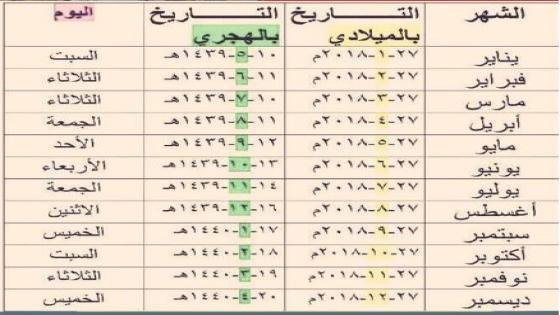 الشهر التـــاريخ بالميلادي التـــاريخ بالهجري اليوم
يناير ٢٧-١-٢٠١٨م ١٠-٥-١٤٣٩هـ السبت
فبراير ٢٧-٢-٢٠١٨م ١١-٦-١٤٣٩هـ الثلاثاء
مارس ٢٧-٣-٢٠١٨م ١٠-٧-١٤٣٩هـ الثلاثاء
أبريل ٢٧-٤-٢٠١٨م ١١-٨-١٤٣٩هـ الجمعة
مايو ٢٧-٥-٢٠١٨م ١٢-٩-١٤٣٩هـ الأحد
يونيو ٢٧-٦-٢٠١٨م ١٣-١٠-١٤٣٩هـ الأربعاء
يوليو ٢٧-٧-٢٠١٨م ١٤-١١-١٤٣٩هـ الجمعة
أغسطس ٢٧-٨-٢٠١٨م ١٦-١٢-١٤٣٩هـ الاثنين
سبتمبر ٢٧-٩-٢٠١٨م ١٧-١-١٤٤٠هـ الخميس
أكتوبر ٢٧-١٠-٢٠١٨م ١٨-٢-١٤٤٠هـ السبت
نوفمبر ٢٧-١١-٢٠١٨م ١٩-٣-١٤٤٠هـ الثلاثاء
ديسمبر ٢٧-١٢-٢٠١٨م ٢٠-٤-١٤٤٠هـ الخميس